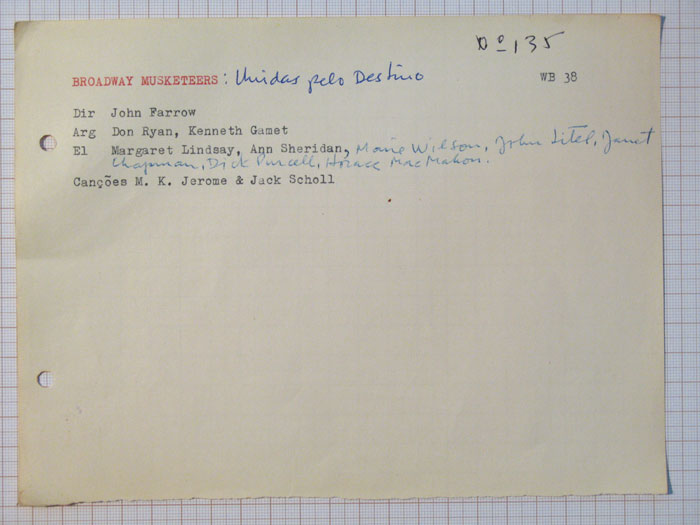 Nº 135
BROADWAY MUSKETEERS: Unidas pelo Destino WB 38
Dir John Farrow
Arg Don Ryan, Kenneth Gamet
El Margaret Lindsay, Ann Sheridan, Marie Wilson, John Litel, Janet
Chapman, Dick Purcell, Horace MacMahon.
Canções M. K. Jerome & Jack Scholl